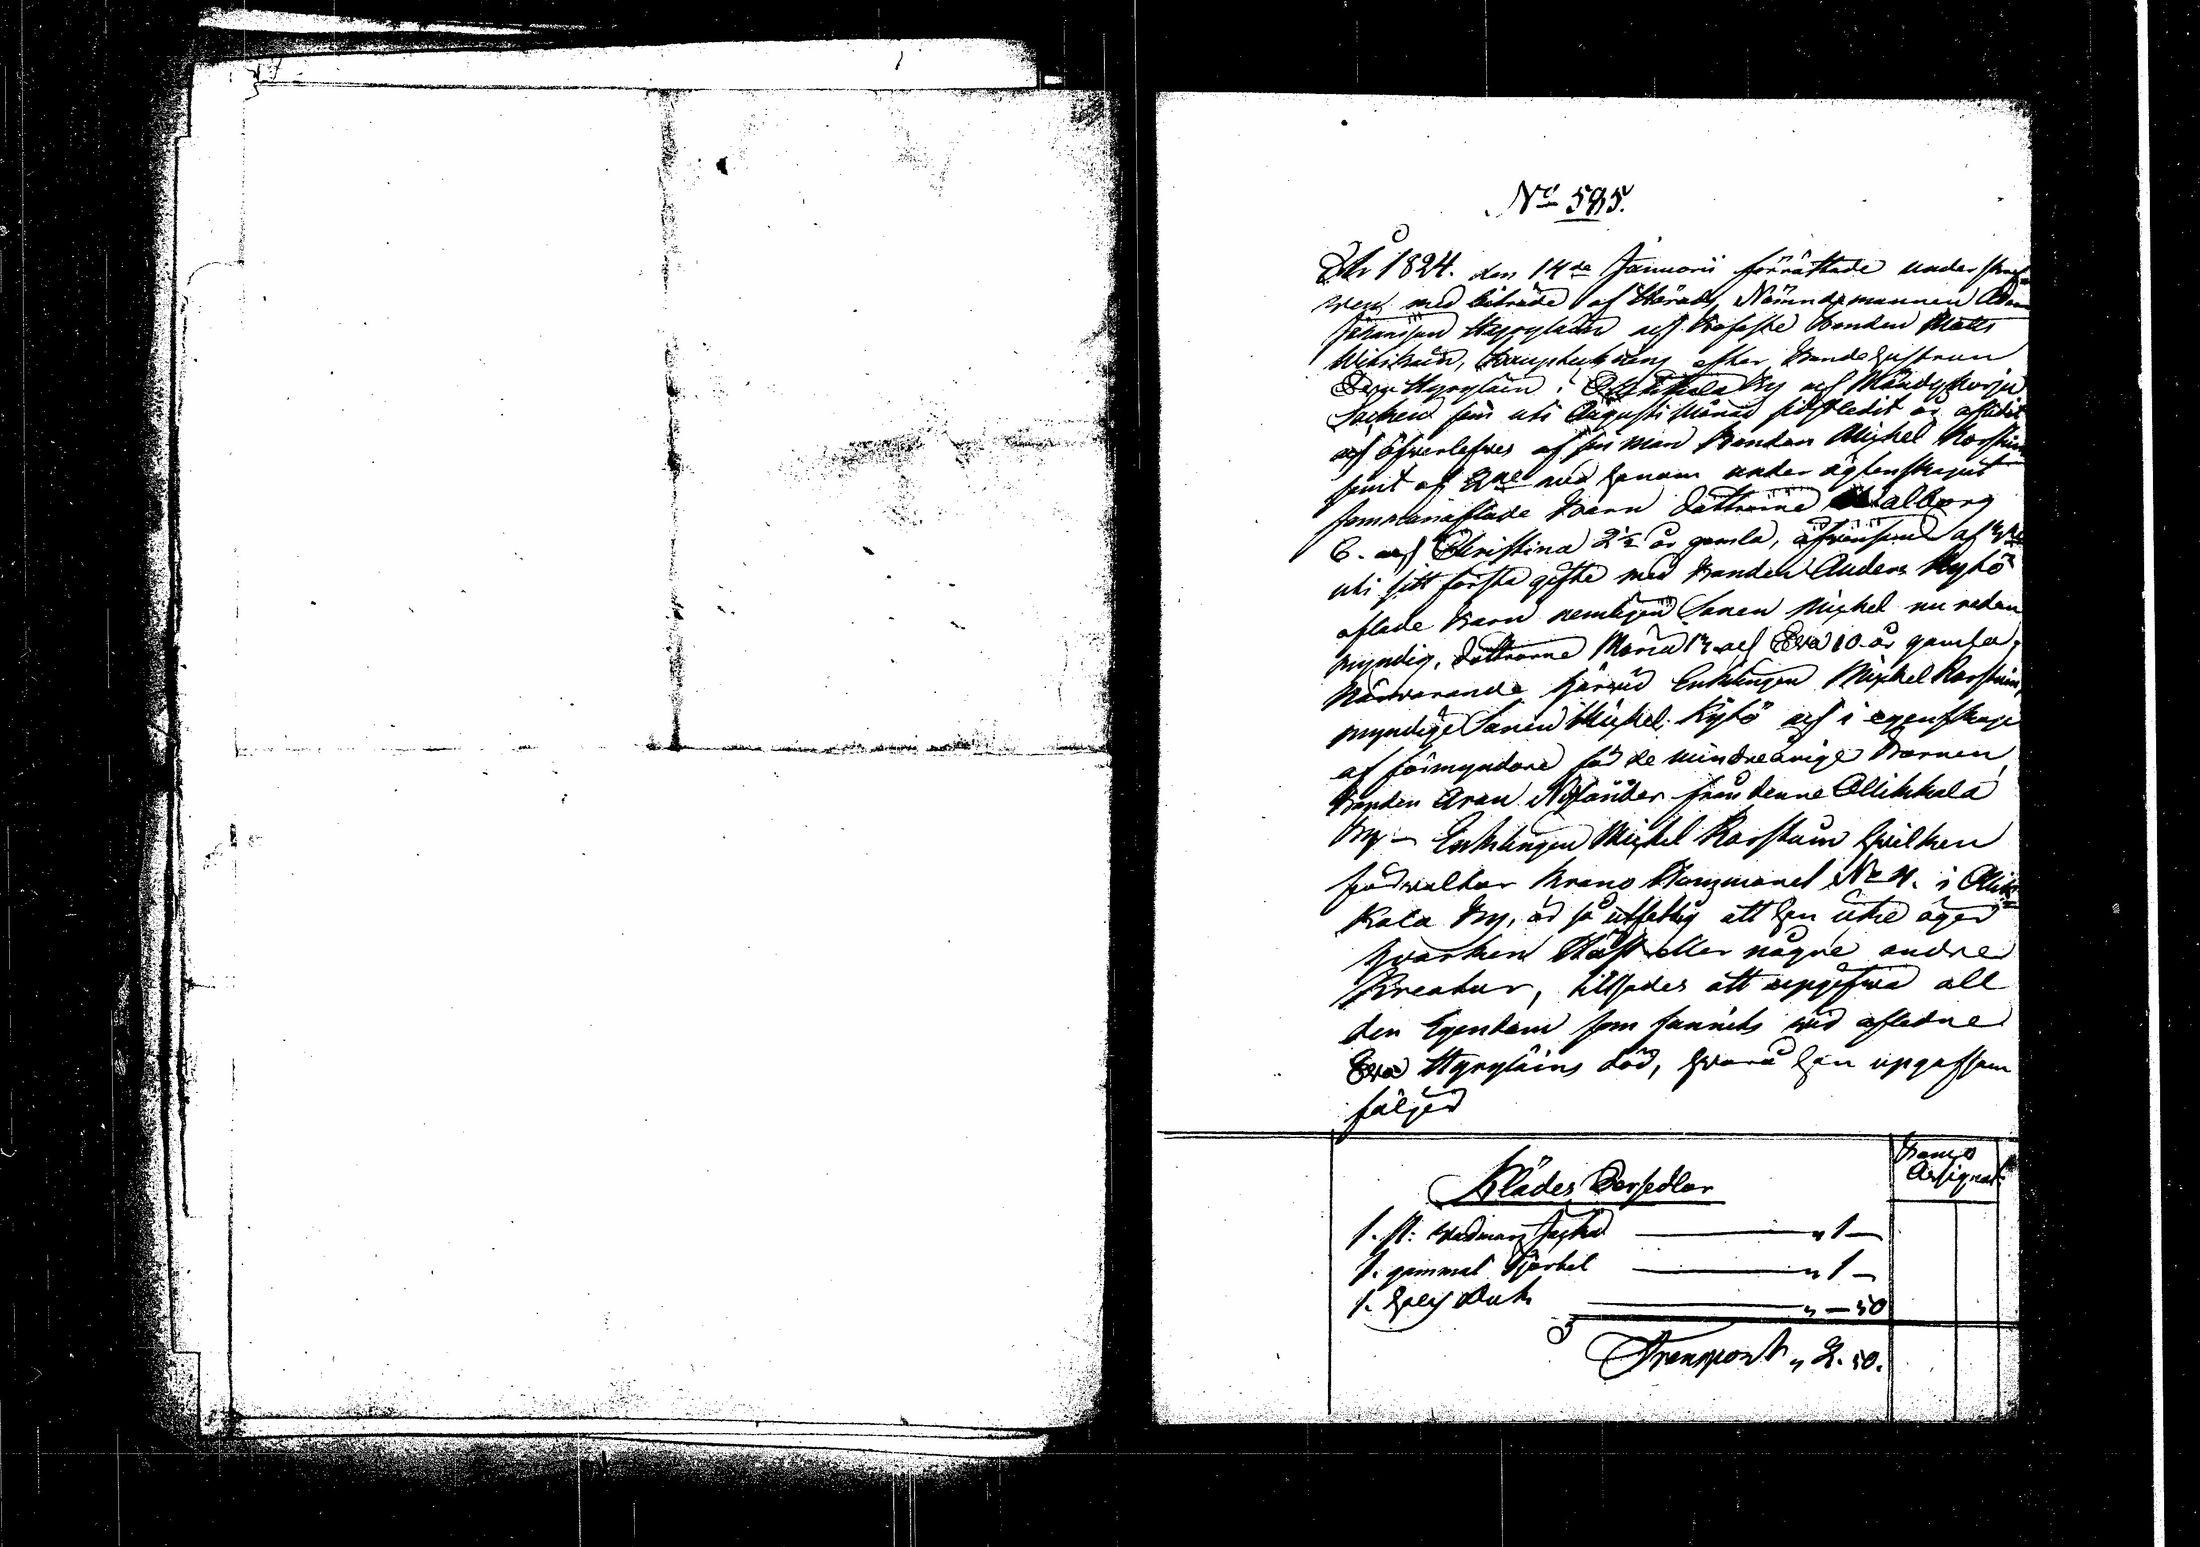 No 585.
År 1824. den 14de Januarii förrättade underskref-
wen med biträde af Härads Nämndemannen
Johansson Hyyryläin och Bofaste Bonden Matts
Wilikain, Bouptekning efter Bondehustrun
Eva Hyryläin i Ollikkala By och Mändyharju
Socken som uti Augusti Månad sidstledit år afledit
och öfwerlefwes af sin man Bonden Michel Karstuin
samt af 2ne med honom under ägtenskapet
sammanaflade Barn Döttrarne Walborg
6. och Christina 2½ år gamla, äfwensom af
uti sitt förstå gifte med Bonden Anders Kyhö
aflade Barn nemligen Sonen Michel nu redan
myndig, Döttrarne Maria och Eva 10 år gamla,
Närwarande härwid Enklingen Michel Karstuin,
myndige Sonen Michel Kyhö och i egenskap
af förmyndare för de minderårige Barnen,
Bonden Aran Nyländer från denne Ollikkala
By – Enklingen Michel Karstuin hvilken
förwaltar Krono Hemmanet No 4. i Ollik-
kala By, är så utfattig att han icke äger
hvarken Häst eller någre andre
Kreatur, tillsades att uppgifwa all
den Egendom som funnits wid afledne
Eva Hyryläins död, hvarå han upgaf som
följer
Banco Assignat.
Klädes Persedlar
1. st: wadmars Jacka — " 1 —
1. gammal Kjortel — " 1 —
1. Duk — " — 50
Transport " 2. 50.